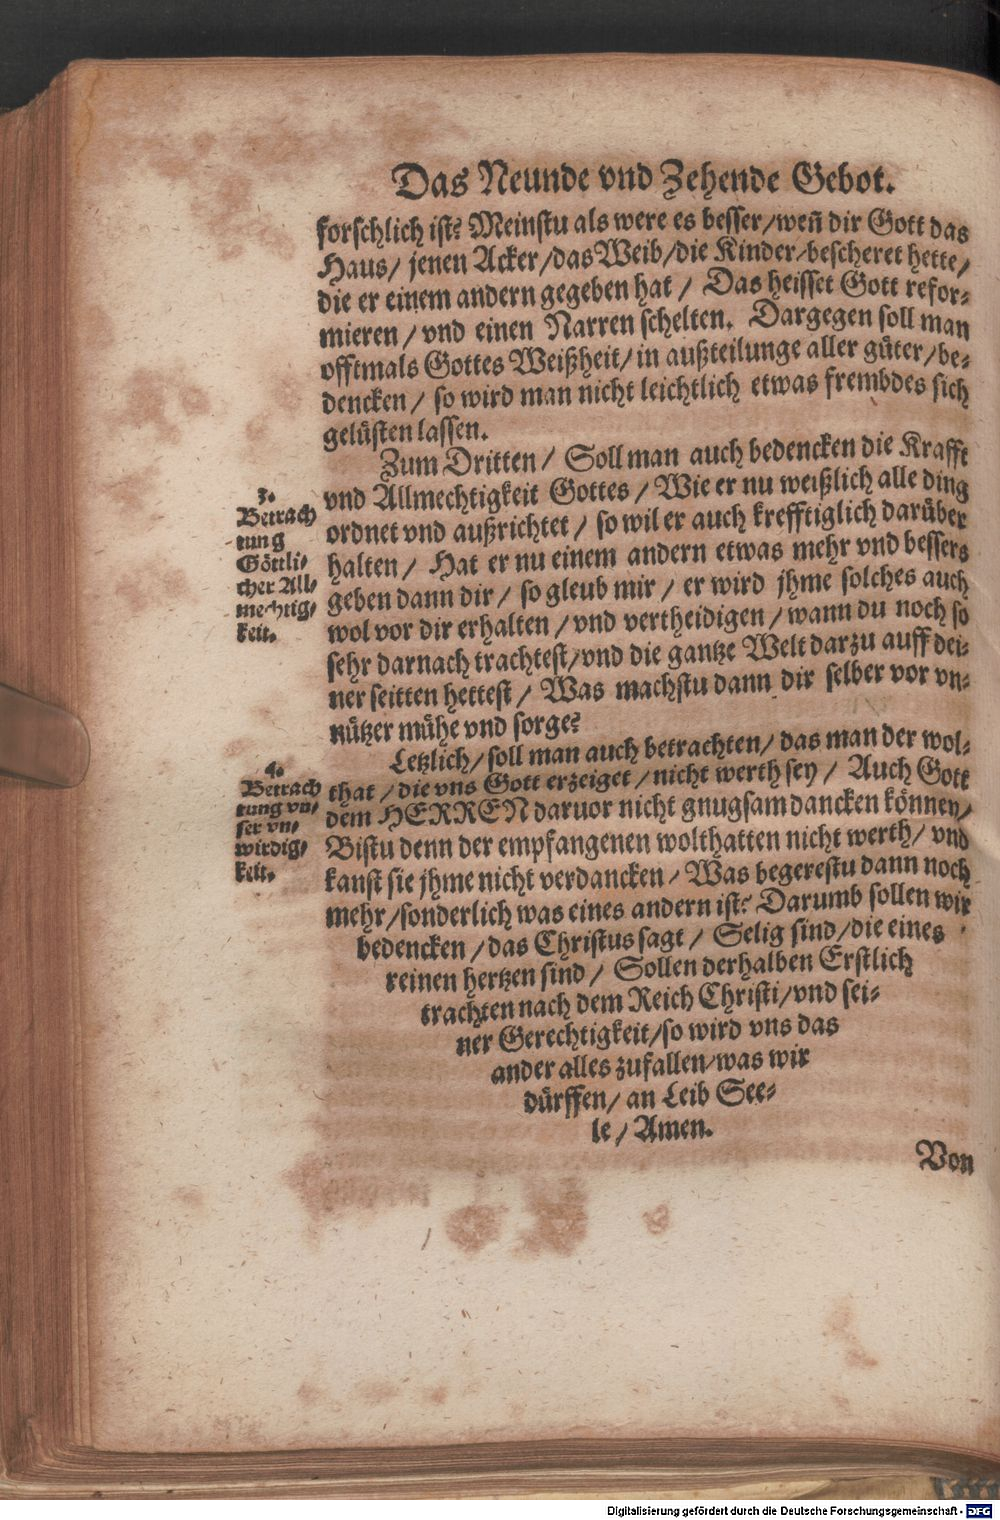 Das Neunde vnd Zehende Gebot.
forschlich ist? Meinstu als were es besser/wen̄ dir Gott das
Haus/ jenen Acker/das Weib/die Kinder/bescheret hette/
die er einem andern gegeben hat / Das heisset Gott refor-
mieren / vnd einen Narren schelten. Dargegen soll man
offtmals Gottes Weißheit/in außteilunge aller güter/be-
dencken / so wird man nicht leichtlich etwas frembdes sich
gelüsten lassen.
Zum Dritten / Soll man auch bedencken die Krafft
vnd Allmechtigkeit Gottes / Wie er nu weißlich alle ding
ordnet vnd außrichtet / so wil er auch krefftiglich darüber
halten / Hat er nu einem andern etwas mehr vnd bessers
geben dann dir / so gleub mir / er wird jhme solches auch
wol vor dir erhalten / vnd vertheidigen / wann du noch so
sehr darnach trachtest/vnd die gantze Welt darzu auff dei-
ner seitten hettest / Was machstu dann dir selber vor vn-
nützer mühe vnd sorge?
3.
Betrach
tung
Göttli-
cher All-
mechtig-
keit.
Letzlich/soll man auch betrachten/ das man der wol-
that / die vns Gott erzeiget / nicht werth sey / Auch Gott
dem HERREN daruor nicht gnugsam dancken können/
Bistu denn der empfangenen wolthatten nicht werth/ vnd
kanst sie jhme nicht verdancken / Was begerestu dann noch
mehr/sonderlich was eines andern ist? Darumb sollen wir
bedencken / das Christus sagt / Selig sind/die eines
reinen hertzen sind / Sollen derhalben Erstlich
trachten nach dem Reich Christi/vnd sei-
ner Gerechtigkeit/so wird vns das
ander alles zufallen/was wir
dürffen/ an Leib See-
le / Amen.
4.
Betrach
tung vn-
ser vn-
wirdig-
keit.
Von
Digitalisierung gefördert durch die Deutsche Forschungsgemeinschaft - DFG